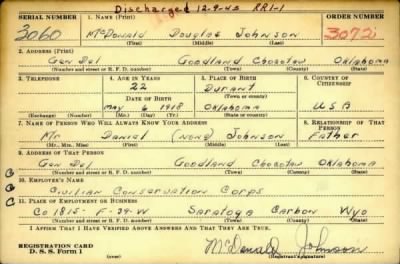 Discharged 12-9-45 RR1-1
SERIAL NUMBER 1. NAME (Print) ORDER NUMBER
3060 McDonald Douglas Johnson 3072
(First) (Middle) (Last)
2. ADDRESS (Print)
Gen Del Goodland Choctaw Oklahoma
(Number and street or R. F. D. number) (Town) (County) (State)
3. TELEPHONE 4. AGE IN YEARS 5. PLACE OF BIRTH 6. COUNTRY OF CITIZENSHIP
22 Durant
DATE OF BIRTH (Town or county)
May 6 1918 Oklahoma USA
(Exchange) (Number) (Mo.) (Day) (Yr.) (State or country)
7. NAME OF PERSON WHO WILL ALWAYS KNOW YOUR ADDRESS 8. RELATIONSHIP OF THAT PERSON
Mr Daniel (none) Johnson Father
(Mr., Mrs., Miss) (First) (Middle) (Last)
9. ADDRESS OF THAT PERSON
Gen Del Goodland Choctaw Oklahoma
(Number and street or R. F. D. number) (Town) (County) (State)
10. EMPLOYER'S NAME
Civilian Conservation Corps
11. PLACE OF EMPLOYMENT OR BUSINESS
Co 1815- F-39-W Saratoga Carbon Wyo
(Number and street or R. F. D. number) (Town) (County) (State)
I AFFIRM THAT I HAVE VERIFIED ABOVE ANSWERS AND THAT THEY ARE TRUE.
REGISTRATION CARD
D. S. S. Form 1 (over) McDonald Johnson
(Registrant's signature)